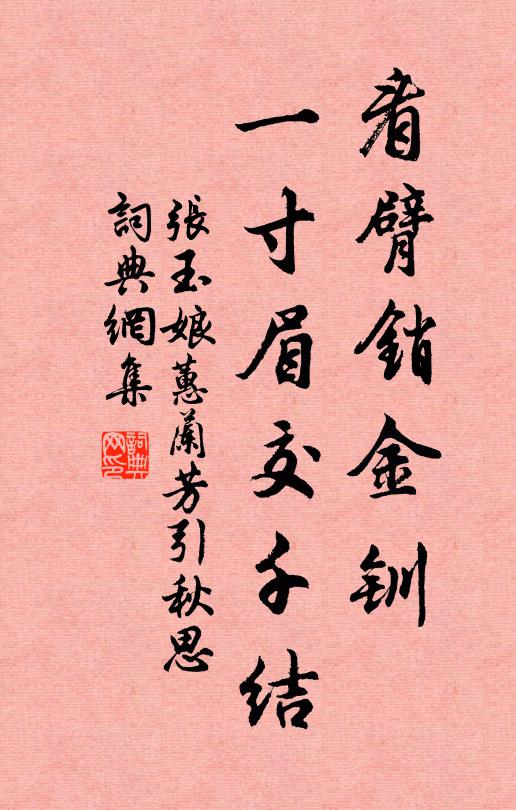 看臂銷金釧
一寸眉交千結
張玉娘蕙蘭芳引秋思
詞典網集
詞典網印